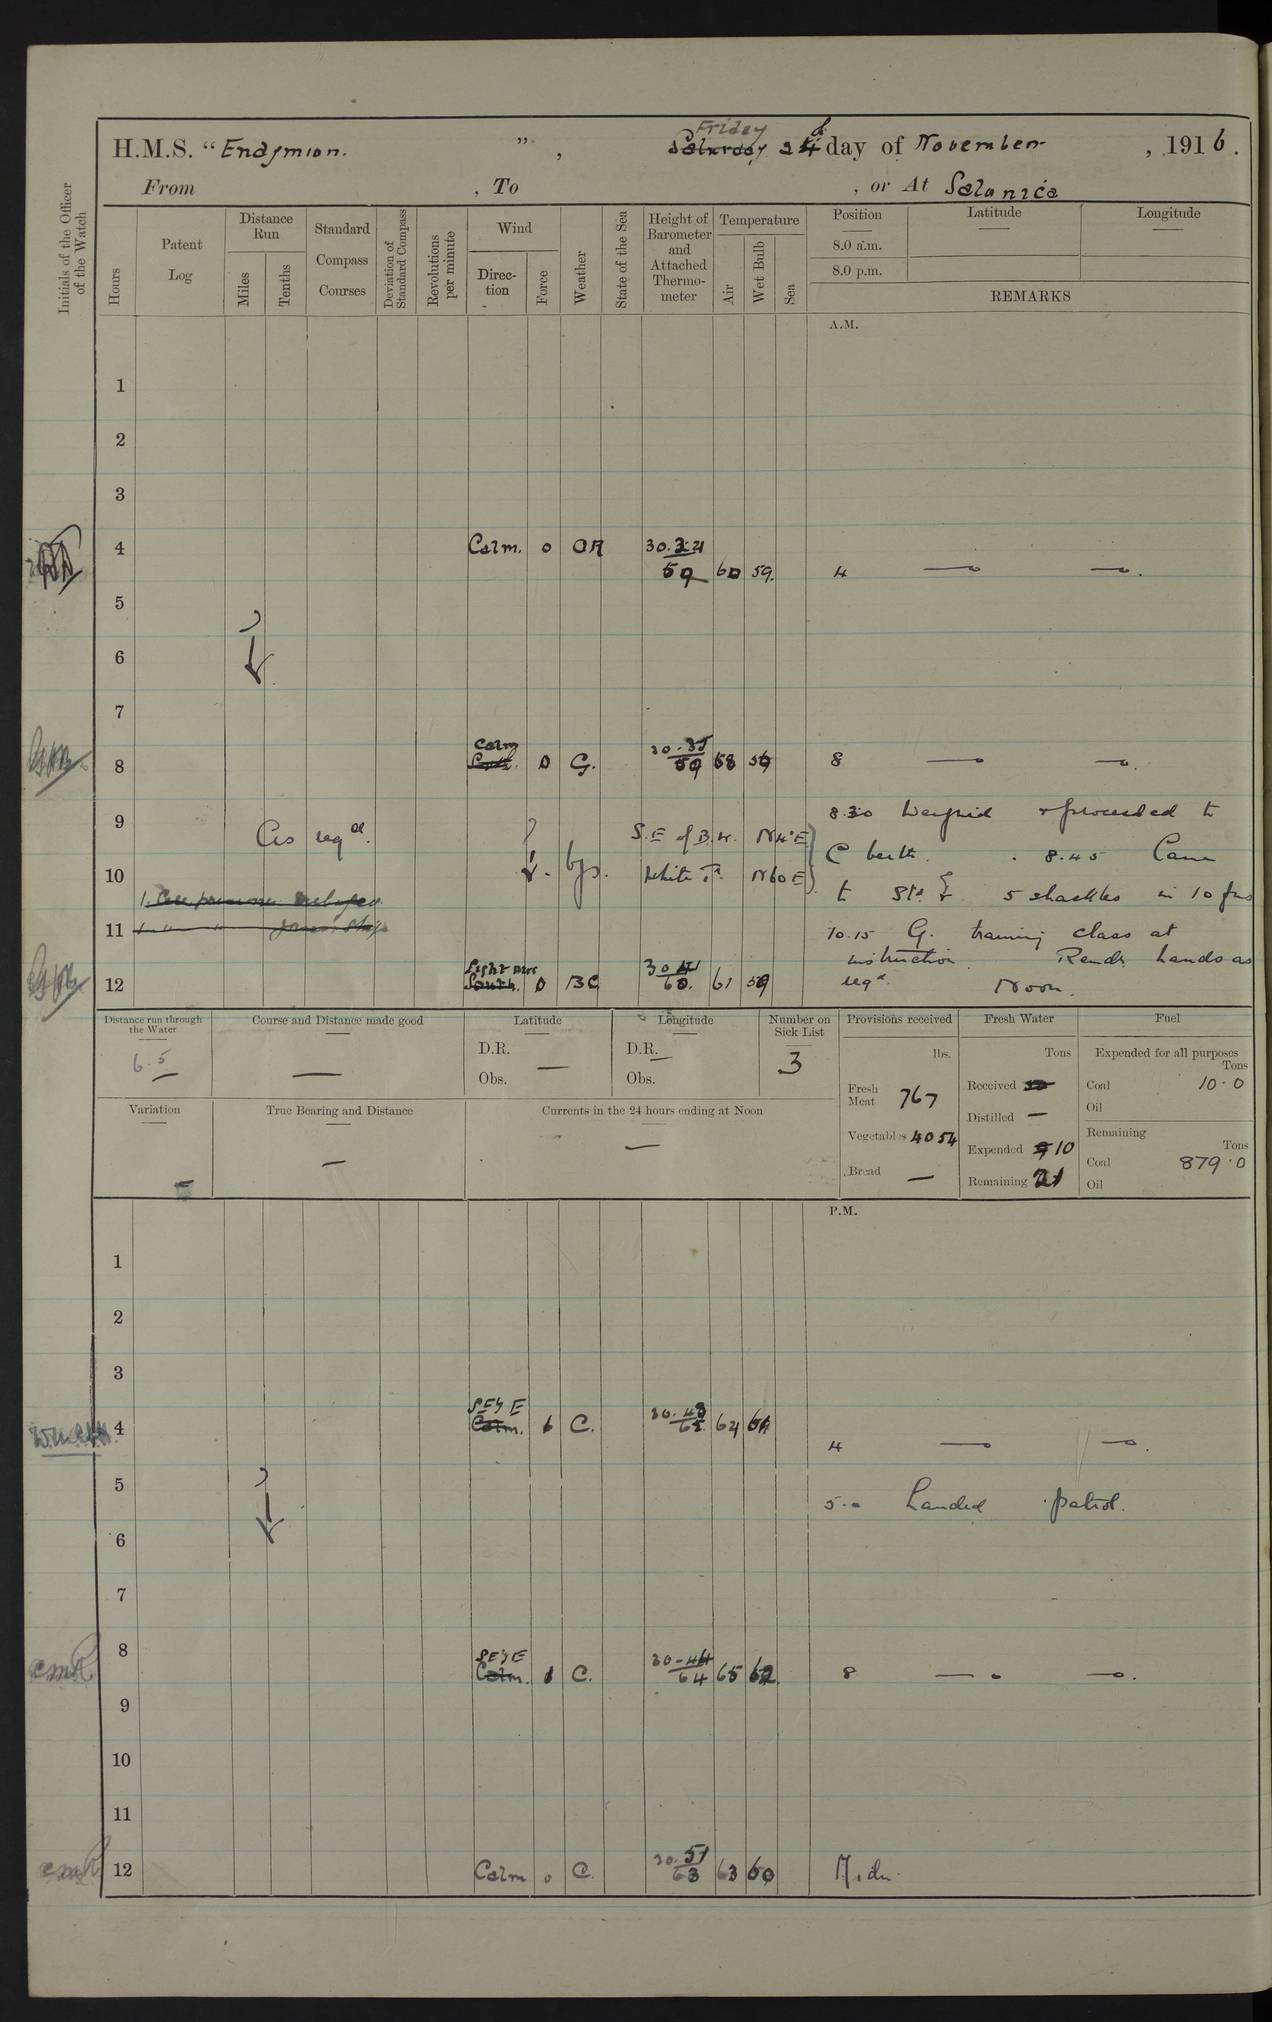 H.M.S. "Endymion. ", Friday Saturday 24 day of November, 1916.
From , To , or At Salonica
Initials of the Officer of the Watch
Hours
Patent Log
Distance Run
Miles
Tenths
Standard Compass Courses
Deviation of Standard Compass
Revolutions per minute
Wind
Direc-tion
Force
Weather
State of the Sea
Height of Barometer and Attached Thermo-meter
Temperature
Air
Wet Bulb
Sea
Position
8.0 a.m.
8.0 p.m.
Latitude
Longitude
REMARKS
A.M.
1
2
3
4 Calm. 0 OR 30.34 59 60 59. 4
5
6
7
8 Calm 0 G. 30.35 59 58 56 8
9 As reqd. S.E of B.H. N4°E 8.30 Weighed & proceeded to
10 White Tr. N60E C berth. 8.45 Came
to Std 5 shackles in 10 fms
11 10.15 G. training class at
instruction. Remdr hands as
12 Light airs South. 0 BC 30.41 60. 61 59 reqd. Noon.
Distance run through the Water
6.5
Course and Distance made good
Latitude
D.R.
Obs.
Longitude
D.R.
Obs.
Number on Sick List
3
Provisions received
lbs.
Fresh Meat 767
Vegetables 4054
Bread —
Fresh Water
Tons
Received
Distilled —
Expended 10
Remaining 21
Fuel
Expended for all purposes
Tons
Coal 10.0
Oil
Remaining
Tons
Coal 879.0
Oil
Variation
True Bearing and Distance
Currents in the 24 hours ending at Noon
P.M.
1
2
3
4 SEyE Calm. 1 C. 30.43 65 64 4
5 5.0 Landed patrol.
6
7
8 SEyE Calm. 1 C. 30.44 64 65 62 8
9
10
11
12 Calm 0 C. 30.51 63 63 60 Midn.